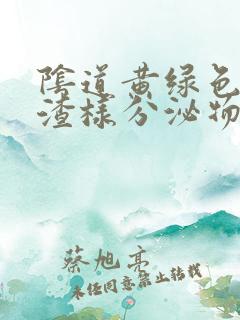 陰道黄绿色
渣樣分泌物
蔡旭亮
未经同意禁止转载